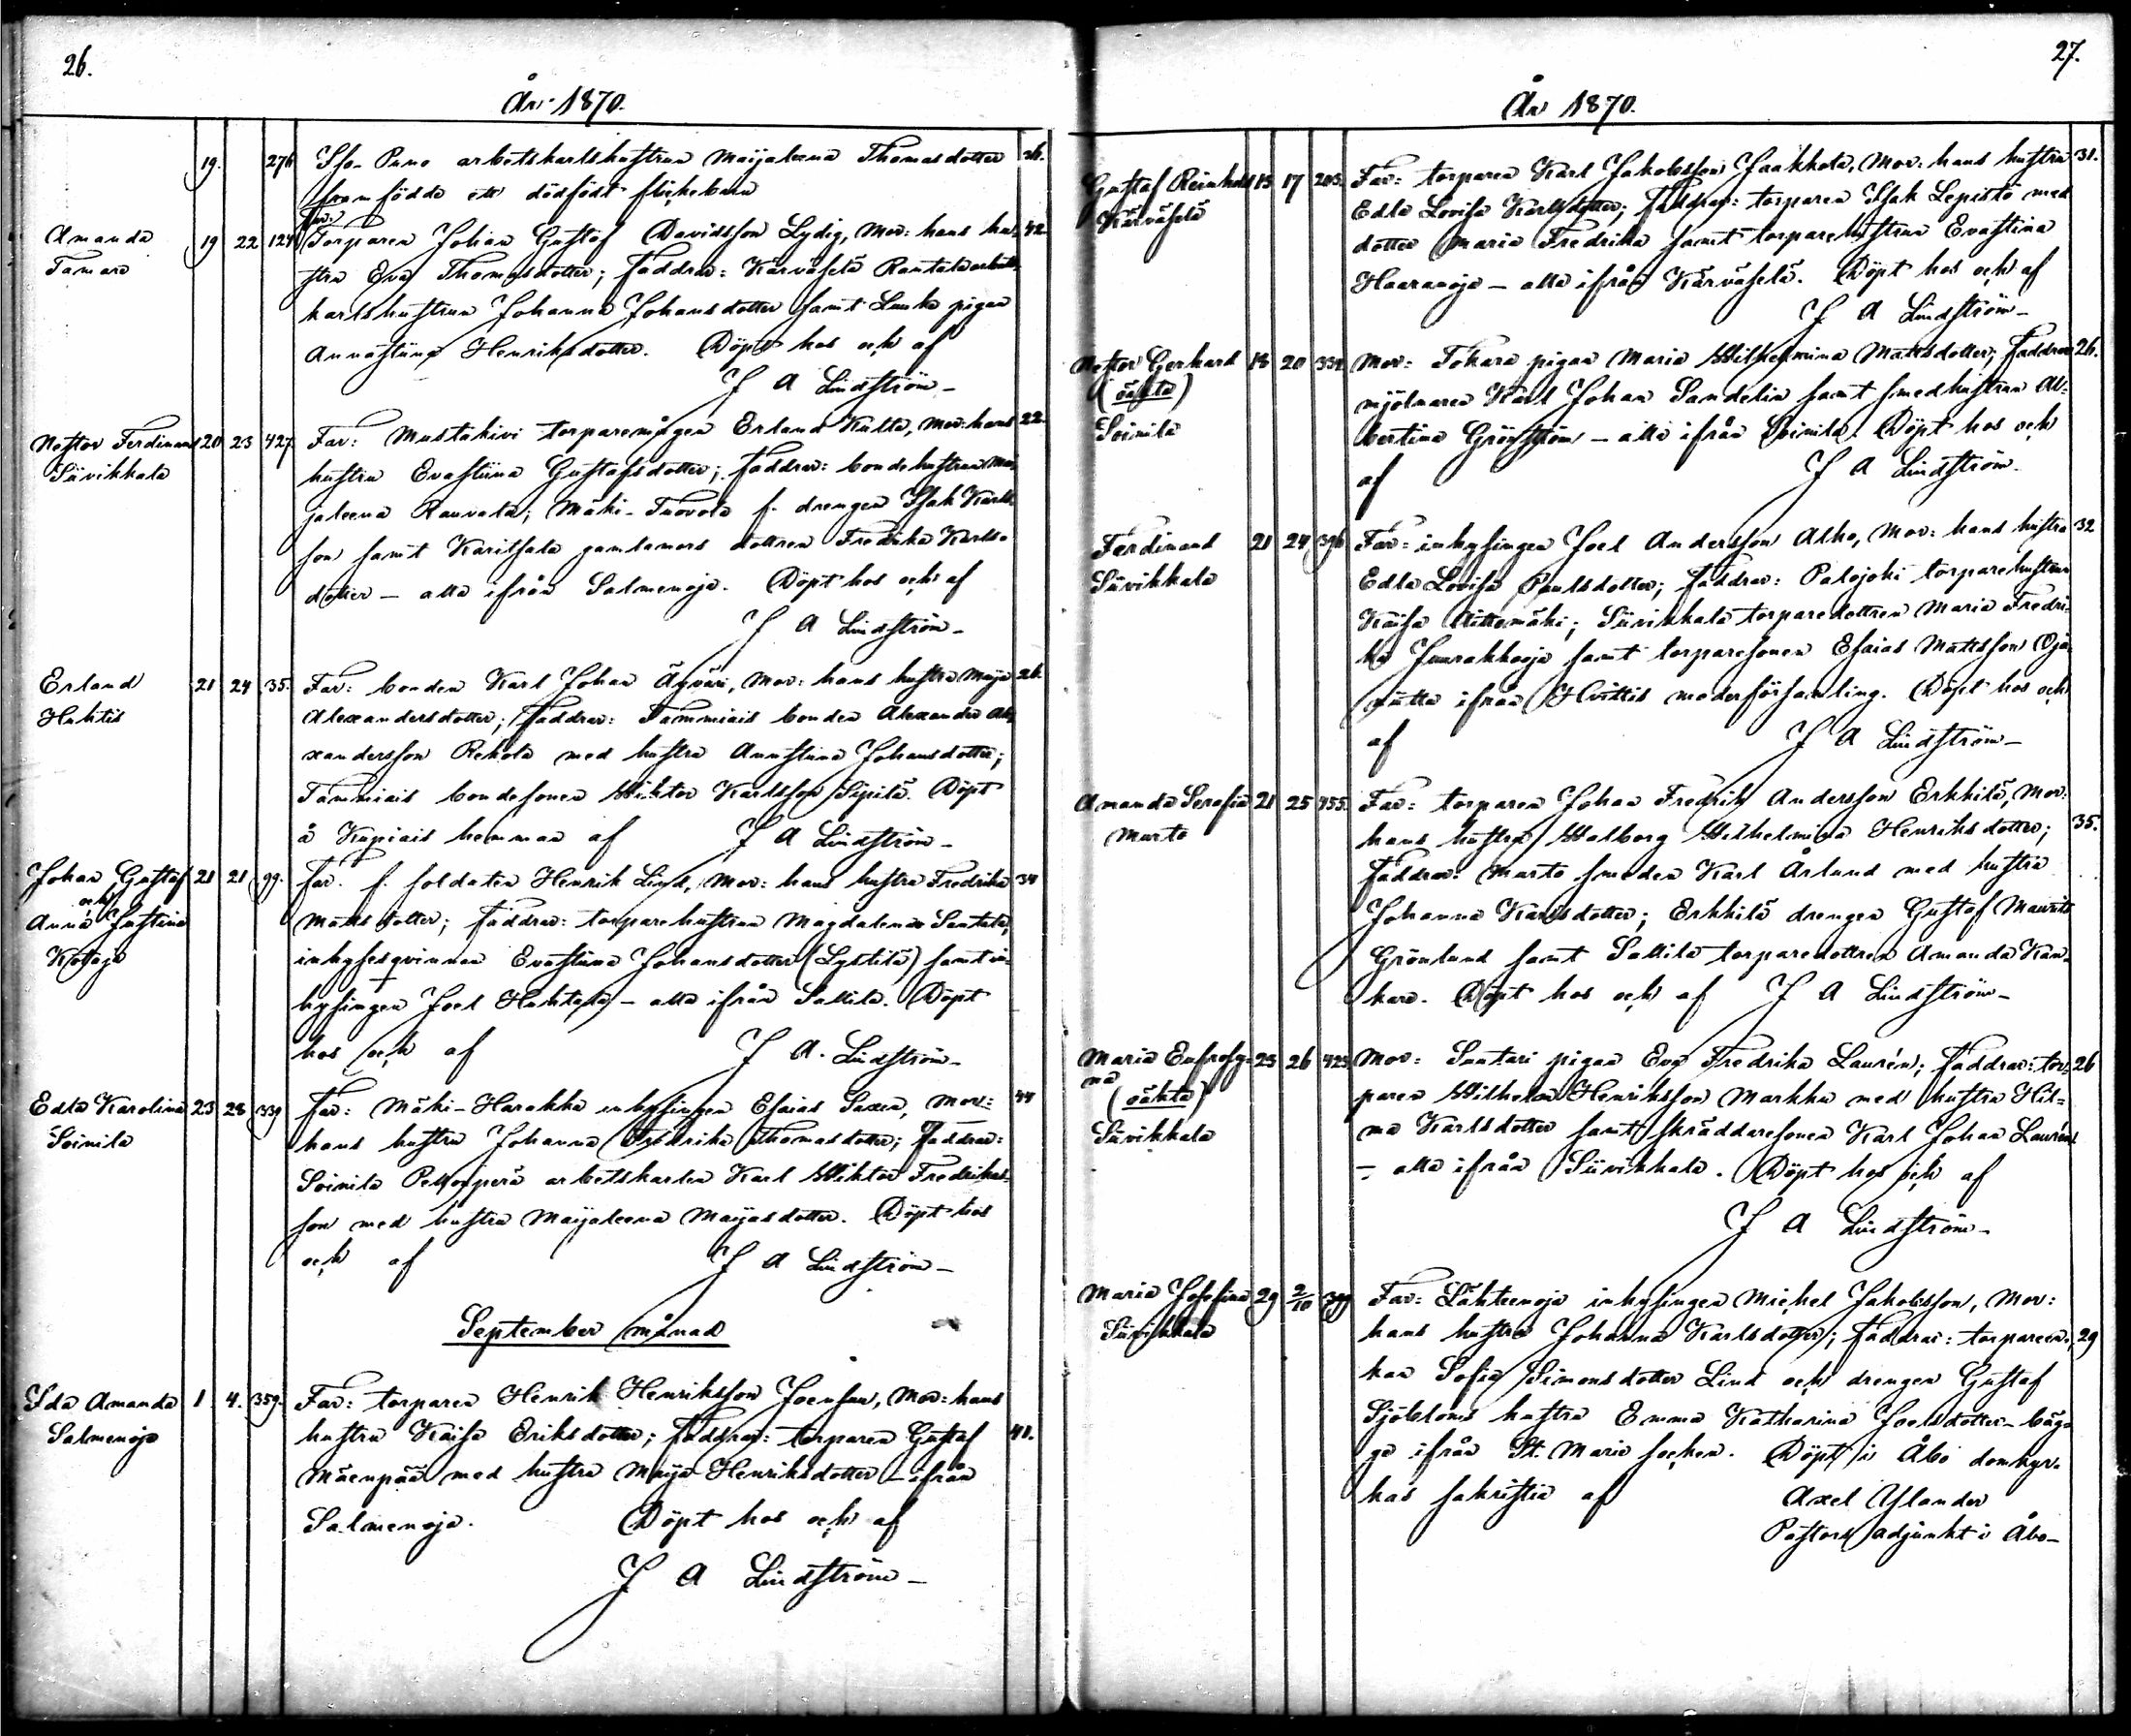 26.
År 1870.
19. 276 Iso-Puno arbetskarlshustrun Maijaleena Thomasdotter 36.
framfödde ett dödfödt flickebarn
Far:
Amanda 19 22 124 Torparen Johan Gustaf Davidsson Lydig, Mor: hans hu- 42
Tamare stru Eva Thomasdotter; Faddrar: Karvaselä Rantala arbets
karlshustrun Johanna Johansdotter samt Lauha pigan
Annastina Henriksdotter. Döpt hos och af
J A Lindström-
Nestor Ferdinand 20 23 427. Far: Mustakivi torparemågen Erland Kulta, Mor: hans 22
Siivikkala hustru Evastiina Gustafsdotter; Faddrar: bondehustrun Mai
jaleena Rauvala; Mäki-Tuovola f. drengen Isak Karls-
son samt Karitsala gamlamors dottren Fredrika Karls-
dotter - alla ifrån Salmenoja. Döpt hos och af
J A Lindström-
Erland 21 24 35. Far: bonden Karl Johan Äyväri, Mor: hans hustru Maija 26.
Huhtis Alexandersdotter; Faddrar: Tammiais bonden Alexander Ale
xandersson Rekola med hustru Annastina Johansdotter;
Tammiais bondesonen Wiktor Karlsson Sipilä. Döpt
å Kapiais hemman af J A Lindström-
Johan Gustaf 21 21 99. Far: f. soldaten Henrik Lind, Mor: hans hustru Fredrika 34
och
Anna Justina Mattsdotter; Faddrar: torparehustrun Magdalena Santala,
Karhoja inhysesqvinnan Evastina Johansdotter (Lystilä) samt in-
hysingen Joel Huhtala - alla ifrån Sallila. Döpt
hos och af J A. Lindström-
Edla Karolina 23 28 339 Far: Mäki-Harakka inhysingen Esaias Saxen, Mor: 44
Soinila hans hustru Johanna Fredrika Thomasdotter; Faddrar:
Soinila Peltoiperä arbetskarlen Karl Wiktor Fredriks-
son med hustru Maijaleena Maijasdotter. Döpt hos
och af J A Lindström-
September månad
Ida Amanda 1 4. 359. Far: torparen Henrik Henriksson Joensuu, Mor: hans
Salmenoja hustru Kaisa Eriksdotter; Faddrar: torparen Gustaf 41.
Mäenpää med hustru Maija Henriksdotter - ifrån
Salmenoja. Döpt hos och af
J A Lindström-
27.
År 1870.
Gustaf Reinhold 15 17 205. Far: torparen Karl Jakobsson Jaakkola, Mor: hans hustru 31.
Karväselä Edla Lovisa Karlsdotter; Faddrar: torparen Isak Lepistö med
dotter Maria Fredrika samt torparehustrun Evastina
Haaranoja - alla ifrån Karväselä. Döpt hos och af
J A Lindström-
Nestor Gerhard 18 20 334. Mor: Tokara pigan Maria Wilhelmina Mattsdotter; Faddrar 26.
(oäkta) mjölnaren Karl Johan Sandelin samt smedhustrun Al-
Soinila bertina Grönström - alla ifrån Soinila. Döpt hos och
af J A Lindström.
Ferdinand 21 24 396 Far: inhysingen Joel Andersson Alho, Mor: hans hustru 32
Siivikkala Edla Lovisa Paulsdotter; Faddrar: Palojoki torparehustrun
Kaisa Riittomäki; Siivikkala torparedottren Maria Fredri-
ka Juurakkooja samt torparesonen Esaias Mattsson Oja-
niitta ifrån Hvittis moderförsamling. Döpt hos och
af J A Lindström-
Amanda Serafia 21 25 455. Far: torparen Johan Fredrik Andersson Erkkilä, Mor:
Murto hans hustru Walborg Wilhelmina Henriksdotter; 35.
Faddrar: Murto smeden Karl Årlund med hustru
Johanna Karlsdotter; Erkkilä drengen Gustaf Maurits
Grönlund samt Sallila torparedottren Amanda Kan-
kare. Döpt hos och af J A Lindström-
Maria Eufrosy- 23 26 423. Mor: Santari pigan Eva Fredrika Laurén; Faddrar: tor- 26
na paren Wilhelm Henriksson Markku med hustru Hil-
(oäkta) ma Karlsdotter samt skräddaresonen Karl Johan Laurén
Siivikkala - alla ifrån Siivikkala. Döpt hos och af
J A Lindström-
Maria Josefina 29 2/10 399 Far: Lähteenoja inhysingen Michel Jakobsson, Mor:
Siivikkala hans hustru Johanna Karlsdotter; Faddrar: torpareen- 29
kan Sofia Simonsdotter Lind och drengen Gustaf
Sjöbloms hustru Emma Katharina Joelsdotter - båg-
ge ifrån St. Marie socken. Döpt i Åbo domkyr-
kas sakristia af Axel Aslander
Pastors adjunkt i Åbo-